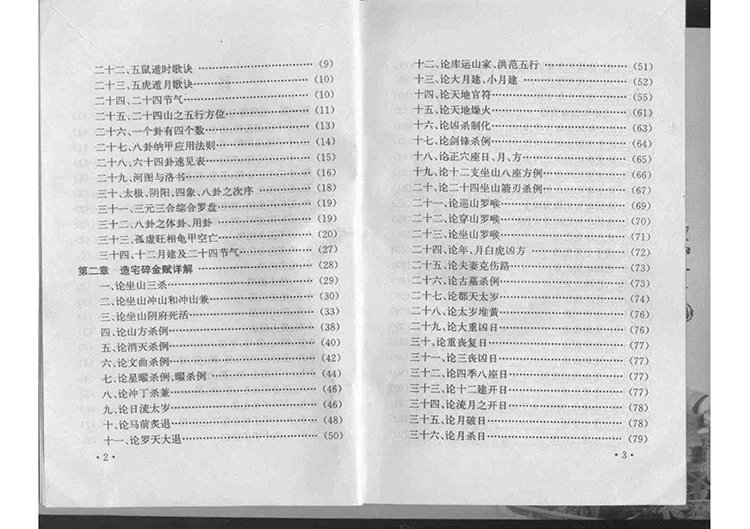 二十二、五鼠遁时歌诀 (9)
二十三、五虎遁月歌诀 (10)
二十四、二十四节气 (10)
二十五、二十四山之五行方位 (11)
二十六、一个卦有四个数 (13)
二十七、八卦纳甲应用法则 (14)
二十八、六十四卦速见表 (15)
二十九、河图与洛书 (16)
三十、太极、阴阳、四象、八卦之次序 (18)
三十一、三元三合综合罗盘 (19)
三十二、八卦之体卦、用卦 (19)
三十三、孤虚旺相龟甲空亡 (20)
三十四、十二月建及二十四节气 (27)
第二章 造宅碎金赋详解 (28)
一、论坐山三杀 (29)
二、论坐山冲山和冲山兼 (30)
三、论坐山阴府死活 (33)
四、论山方杀例 (38)
五、论消灭杀例 (40)
六、论文曲杀例 (42)
七、论星曜杀例、曜杀例 (44)
八、论冲丁杀兼 (46)
九、论日流太岁 (46)
十、论马前炙退 (48)
十一、论罗天大退 (50)
·2·
十二、论库运山家、洪范五行 (51)
十三、论大月建、小月建 (52)
十四、论天地官符 (55)
十五、论天地燥火 (61)
十六、论凶杀制化 (63)
十七、论剑锋杀例 (64)
十八、论正穴座日、月、方 (65)
十九、论十二支坐山八座方例 (66)
二十、论二十四坐山箭刃杀例 (67)
二十一、论巡山罗喉 (69)
二十二、论穿山罗喉 (70)
二十三、论坐山罗喉 (71)
二十四、论年、月白虎凶方 (72)
二十五、论夫妻克伤路 (73)
二十六、论古墓杀例 (73)
二十七、论都天太岁 (74)
二十八、论太岁堆黄 (76)
二十九、论大重凶日 (76)
三十、论重丧复日 (77)
三十一、论三丧凶日 (77)
三十二、论四季八座日 (77)
三十三、论十二建开日 (77)
三十四、论流月之开日 (78)
三十五、论月破日 (78)
三十六、论月杀日 (79)
·3·